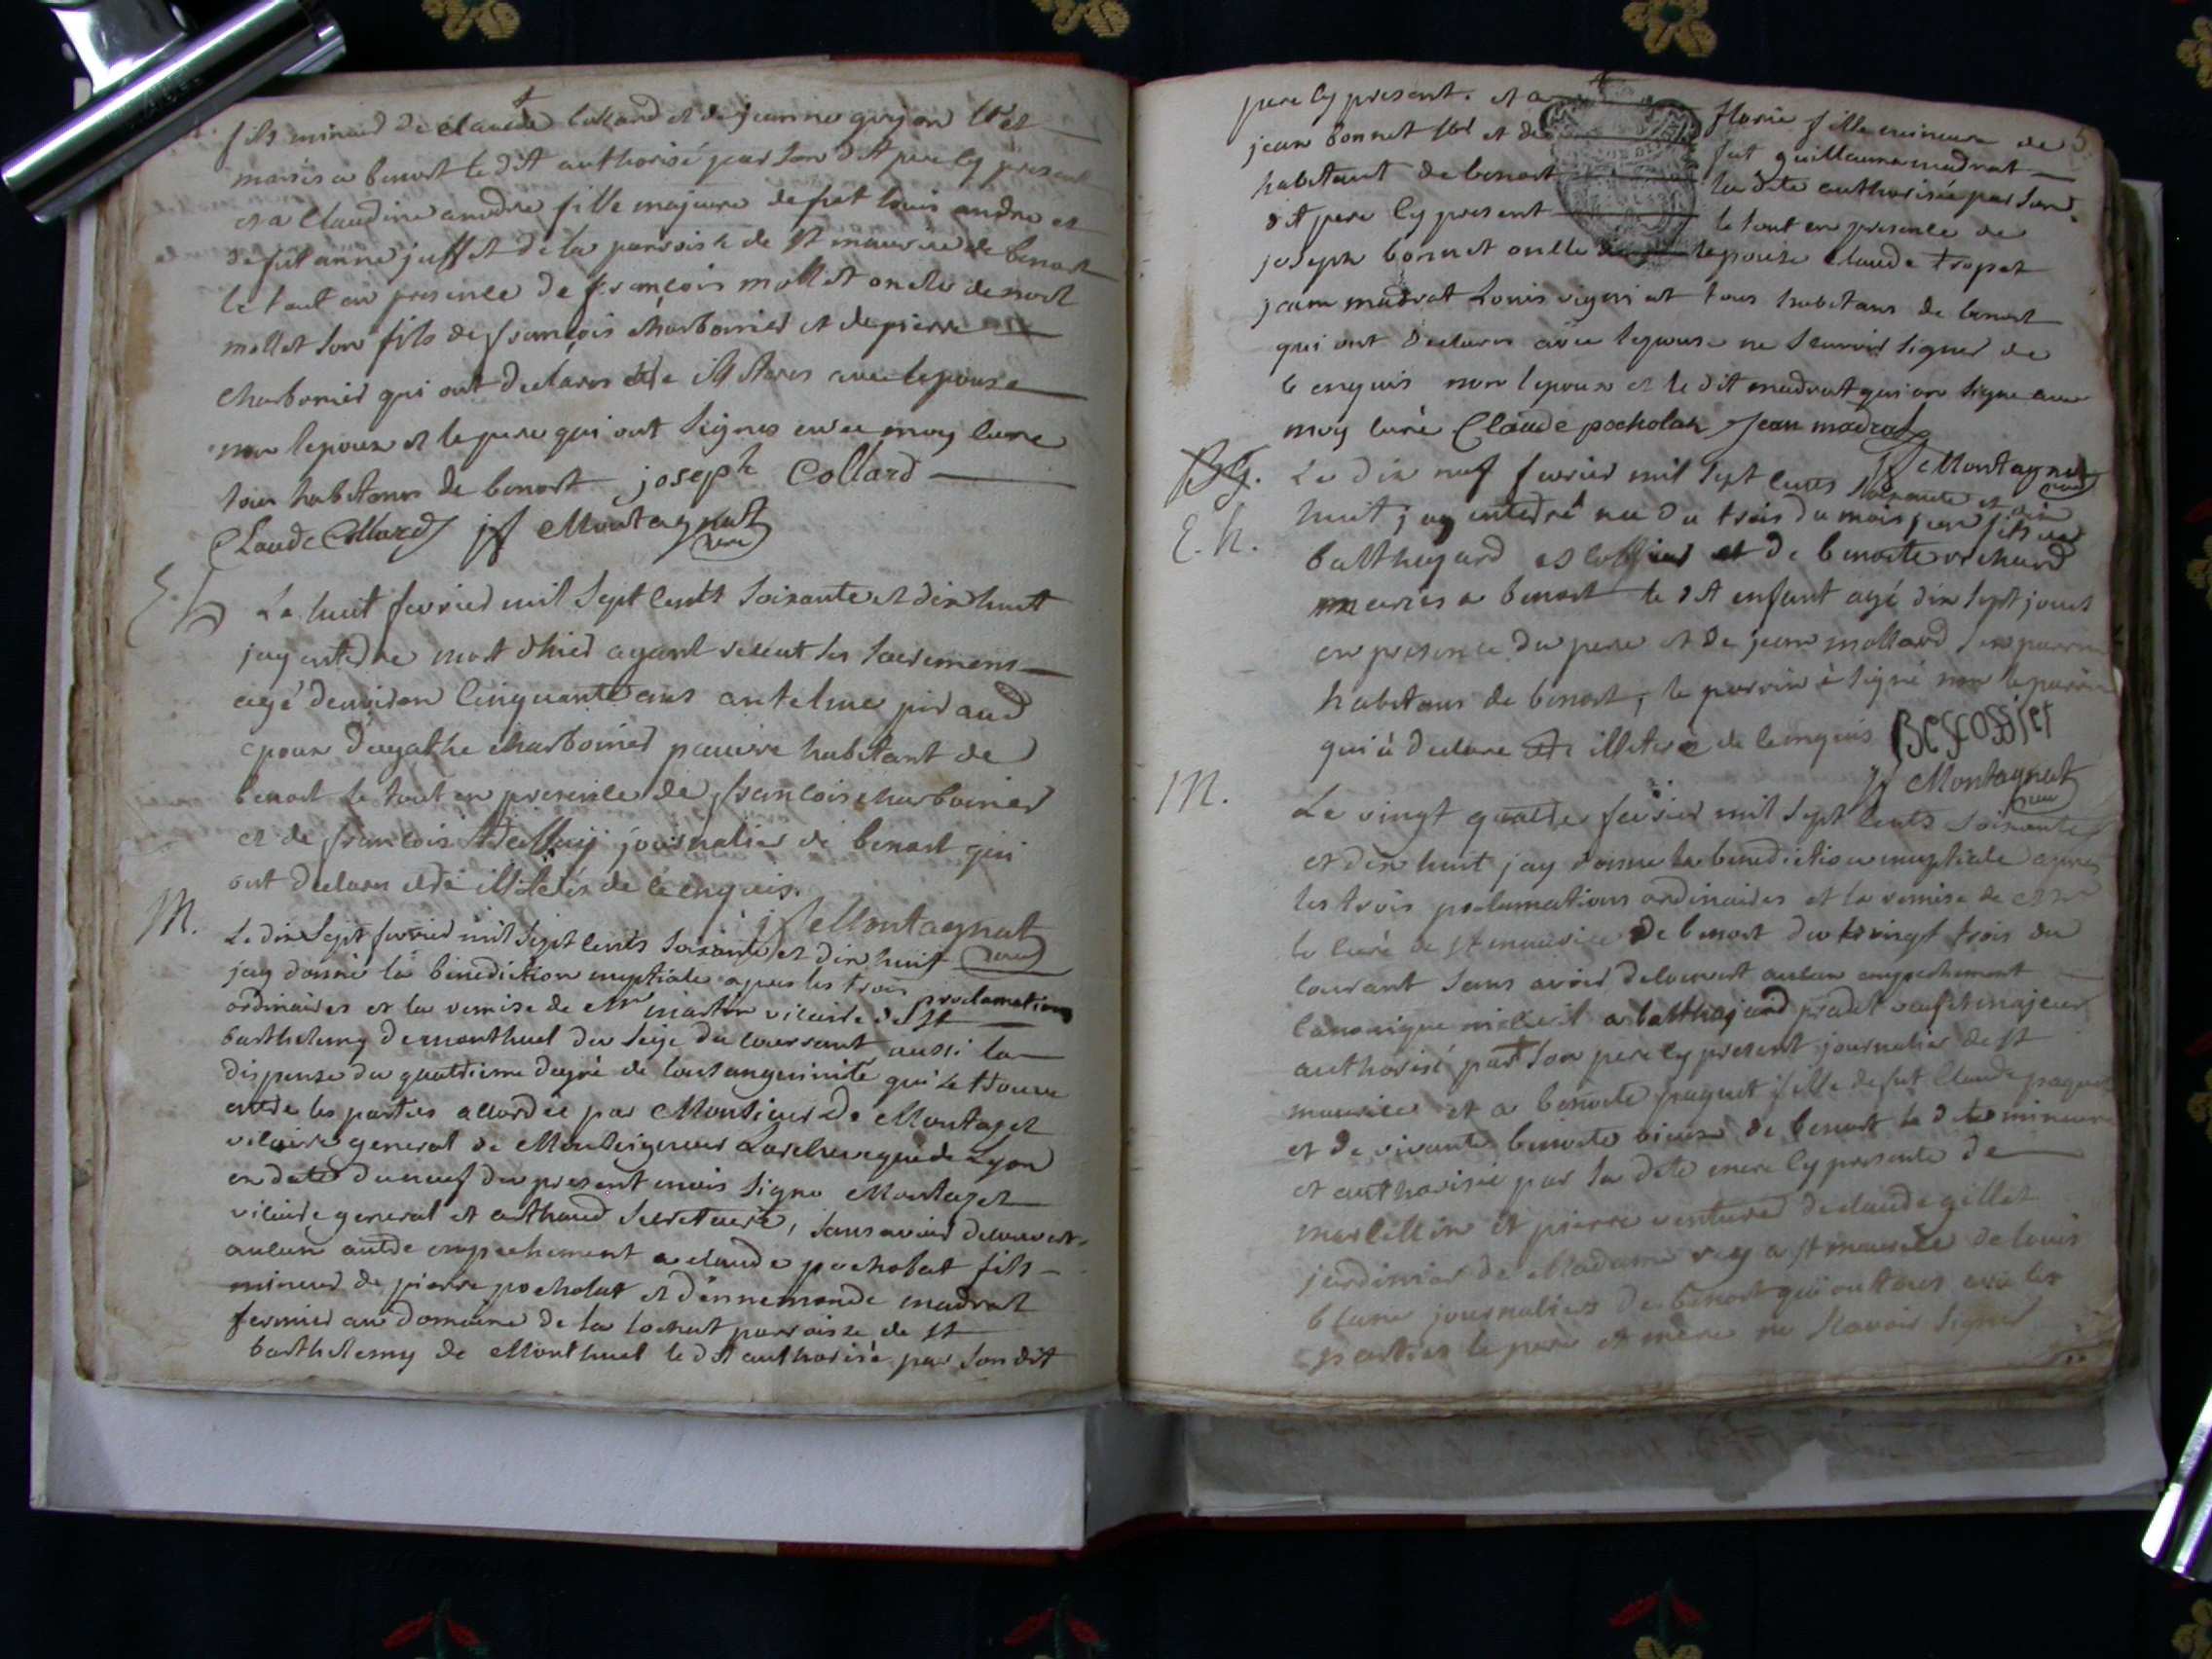 fils mineur de claude Collard et de jeanne guyon
mariés a benost le dit authorisé par son dit pere cy present
et a Claudine andre fille majeure de fut louis andre et
de fut anne juffet de la paroisse de st maurice de benost
le tout en presence de françois mollet oncle de
mollet son fils de françois charbonier et de pierre
charbonier qui ont declares être illiteres avec lepouse
non lepoux et le pere qui ont signes avec moy curé
tous habitans de benost joseph Collard
Claude Collard jf Montagnat curé
E. h
Le huit fevrier mil sept cents soixante et dix huit
jay enterré mort d'hier ayant recent les sacremens
agé denviron cinquante ans antelme piraud
epoux dagathe charbonier pauvre habitant de
benost le tout en presence de françois charbonier
et de françois journalier de benost qui
ont declares etre illiteres de ce enquis.
jf Montagnat curé
M.
Le dix sept fevrier mil sept cents soixante et dix huit
jay donné la benediction nuptiale apres les trois proclamations
ordinaires et la remise de Mr martin vicaire de st
barthelemy de monthuel du seize du courrant aussi la
dispense du quattrieme degré de consanguinité qui se trouve
entre les parties accordée par Monsieur De Montazet
vicaire general de Monseigneur Larchevegue de Lyon
en date du neuf du present mois signe Montazet
vicaire general et arthaud secretaire, sans avoir decouvert
aucun autre empechement a claude pocholat fils
mineur de pierre pocholat et dennemonde madrat
fermier au domaine de la paroisse de st
barthelemy de Monthuel le dit authorisé par son dit
pere cy present. et a florie fille mineure de 5
jean bonnet et de fut guillauma madrat
habitant de benost la dite authorisée par son
dit pere cy present le tout en presence de
joseph bonnet oncle de lepouse claude tropet
jean madrat Louis tous habitans de benost
qui ont declares avec lepouse ne scavoir signer de
ce enquis non lepoux et le dit madrat qui on signe avec
moy curé Claude pocholat Jean madrat
jf Montagnat curé
E. h.
Le dix neuf fevrier mil sept cents soixante et dix
huit jay enterré ne du trois du mois jean fils de
balthazard escoffier et de benoite
mariés a benost le dit enfant agé dix sept jours
en presence du pere et de jean mollard son parrin
habitans de benost, le parrin à signé non le parrin
qui à declare etre illitere de ce enquis
jf Montagnat curé
M.
Le vingt quatre fevrier mil sept cents soixante
et dix huit jay donne la benediction nuptiale apres
les trois proclamations ordinaires et la remise de Mr
le curé de st maurice de benost du vingt trois du
courant sans avoir decouvert aucun empechement
canonique ni civil a balthazard pradit majeur
authorisé par son pere cy present journalier de st
maurice et a benoite paquet fille de fut Claude paquet
et de vivante benoite de benost la dite mineure
et authorisée par sa dite mere cy presente de
marcellin et pierre venture de claude gillet
jardinier de Madame rey a st maurice de louis
blanc journaliers de benost qui ont tous avec les
parties le pere et mere ne scavoir signer